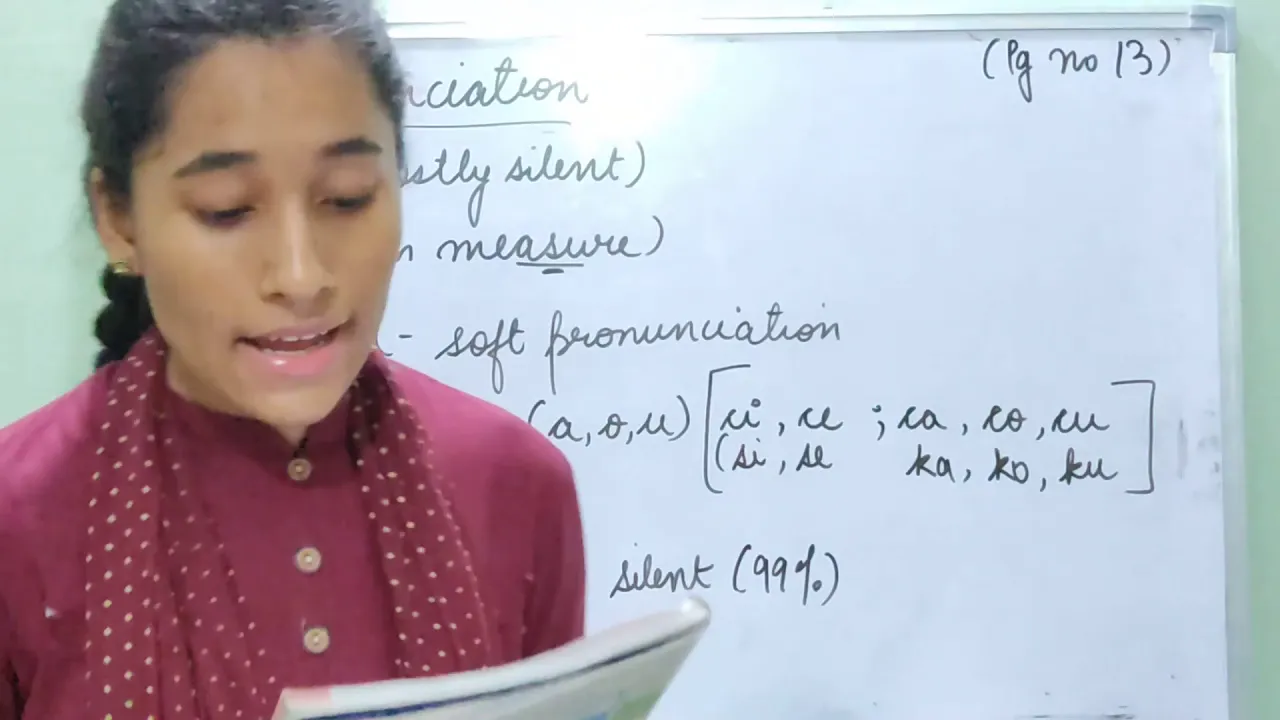 (Pg no 13)
nciation
stly silent)
n measure)
- soft pronunciation
(a, o, u) [ci, ce ; ca, co, cu
(si, se ka, ko, ku]
silent (99%)